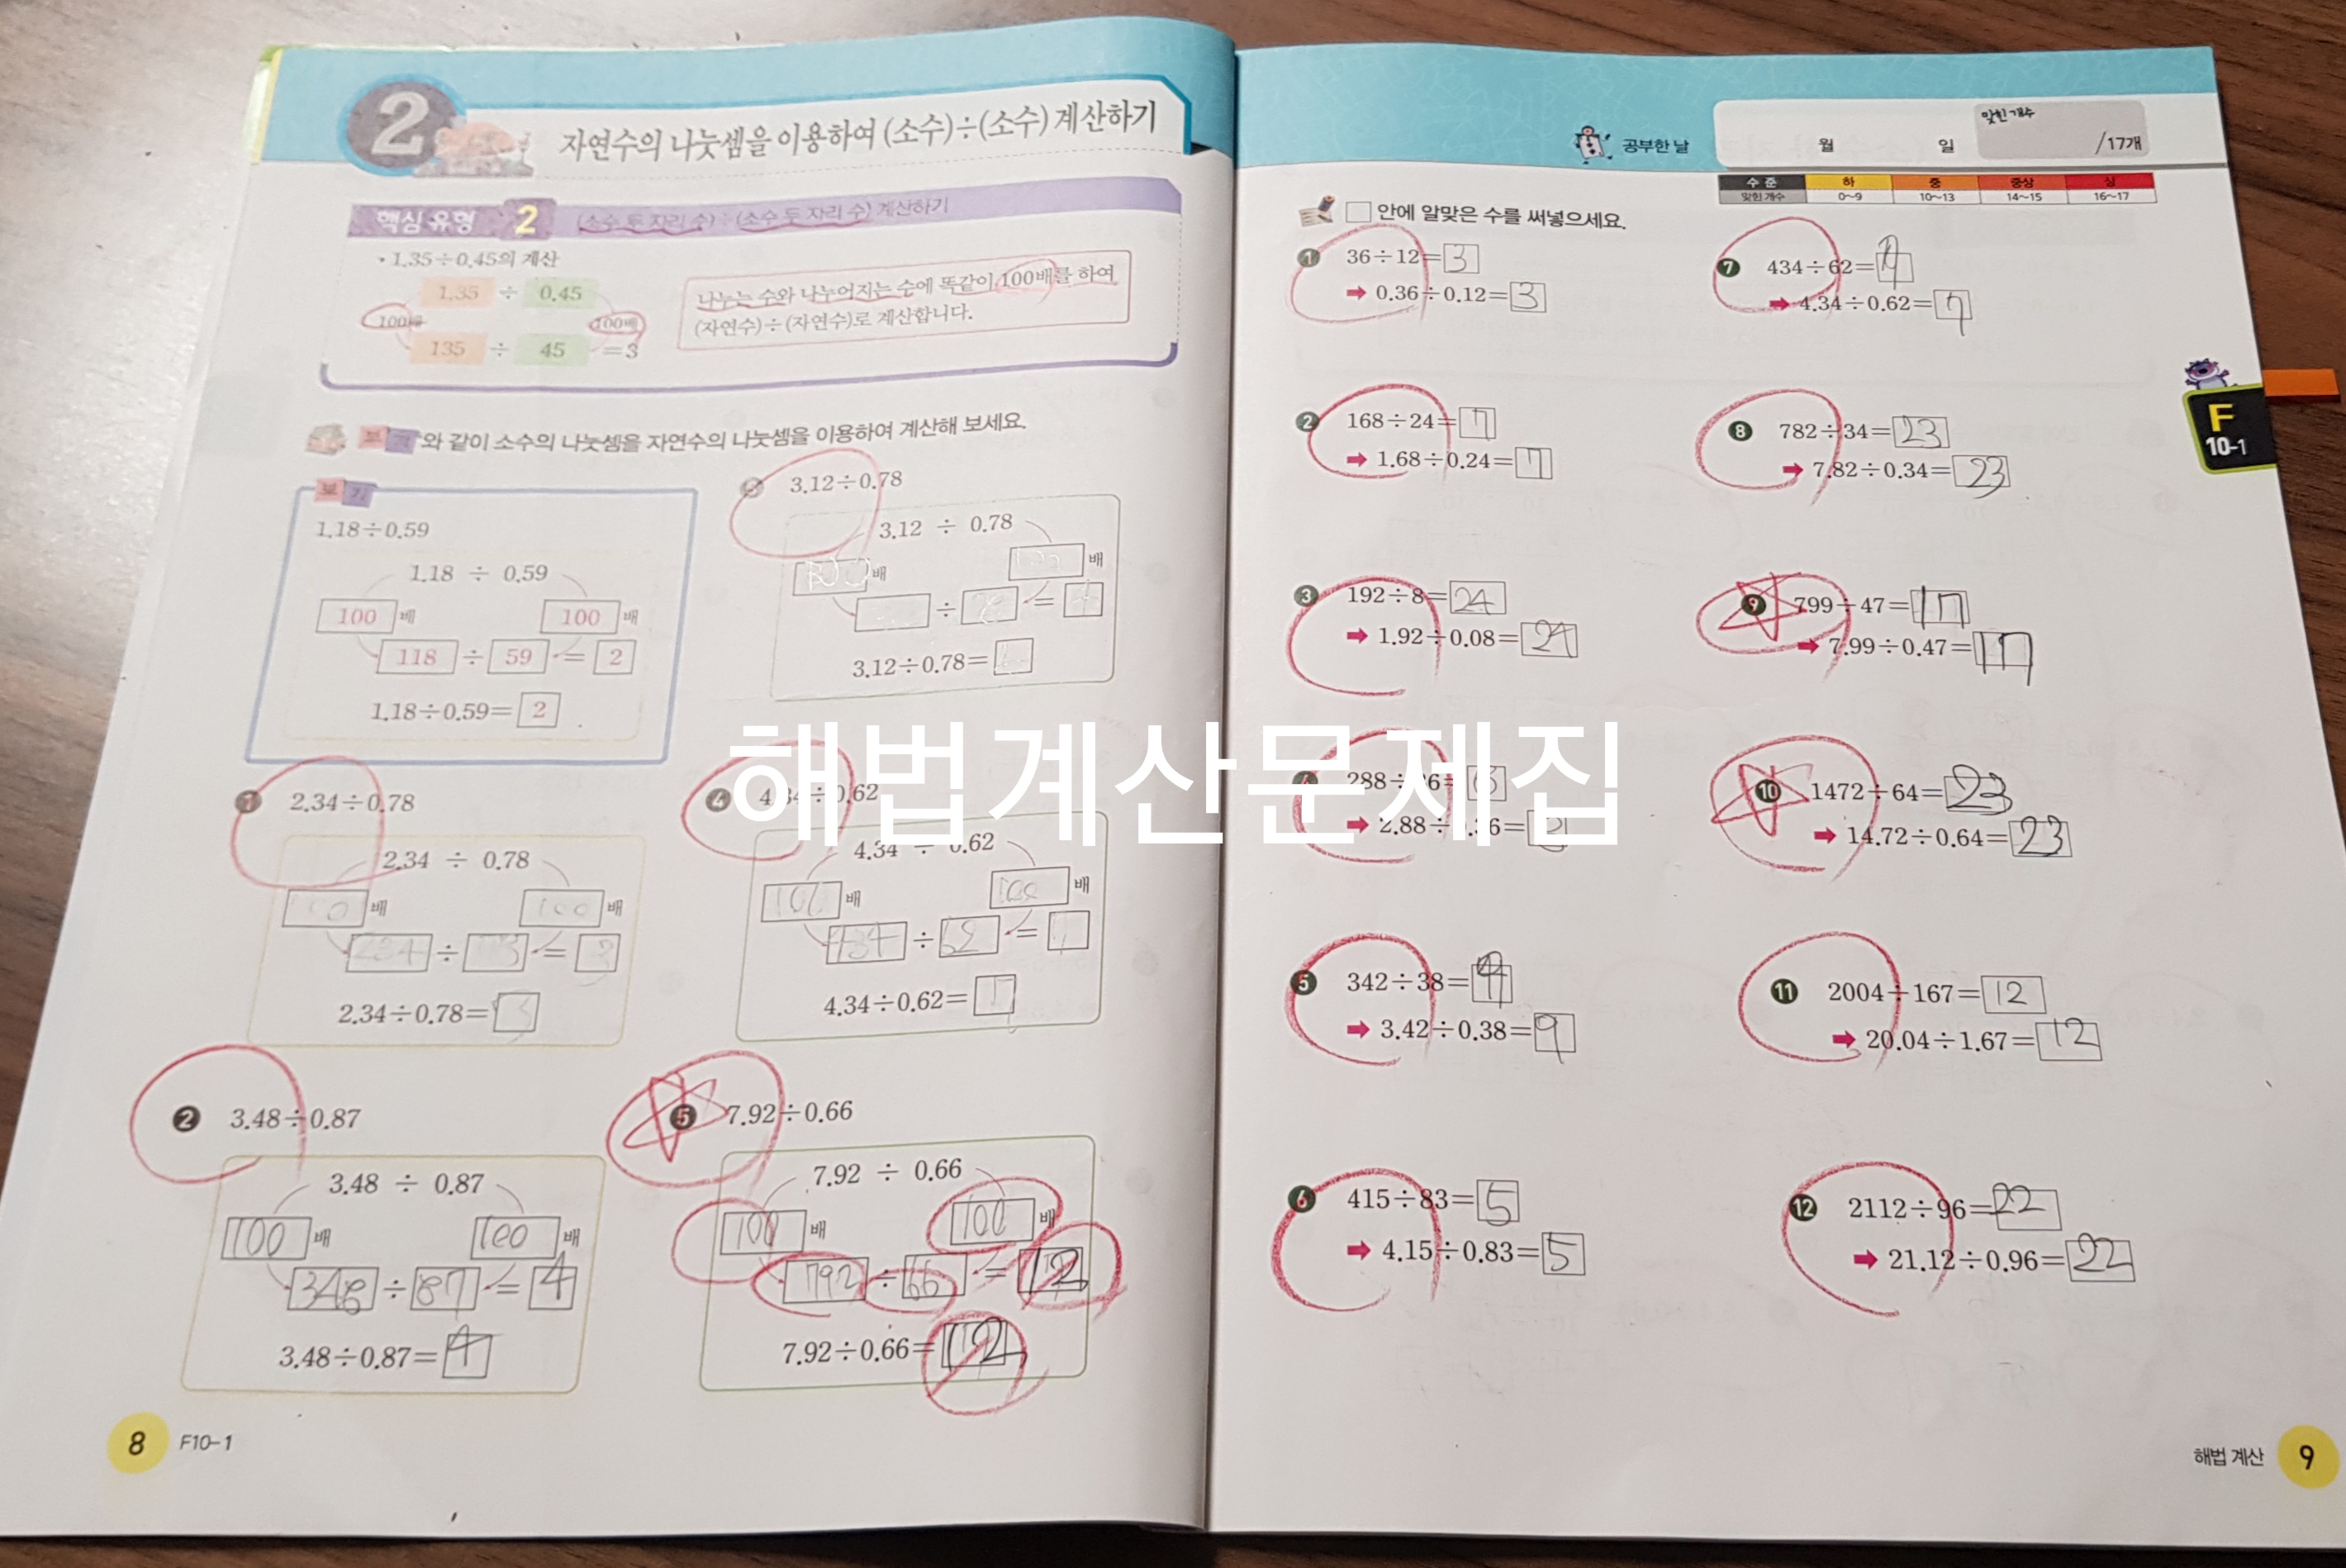 2
자연수의 나눗셈을 이용하여 (소수)÷(소수) 계산하기
핵심 유형 2 (소수 두 자리 수)÷(소수 두 자리 수) 계산하기
• 1.35÷0.45의 계산
1.35 ÷ 0.45
100배 100배
135 ÷ 45 =3
나누는 수와 나누어지는 수에 똑같이 100배를 하여
(자연수)÷(자연수)로 계산합니다.
보기 와 같이 소수의 나눗셈을 자연수의 나눗셈을 이용하여 계산해 보세요.
보기
1.18÷0.59
1.18 ÷ 0.59
100 배 100 배
118 ÷ 59 = 2
1.18÷0.59= 2
① 2.34÷0.78
2.34 ÷ 0.78
100 배 100 배
234 ÷ = 3
2.34÷0.78= 3
② 3.48÷0.87
3.48 ÷ 0.87
100 배 100 배
348 ÷ 87 = 4
3.48÷0.87= 4
3.12÷0.78
3.12 ÷ 0.78
배 배
÷ = 4
3.12÷0.78=
④ 4.34÷0.62
4.34 ÷ 0.62
100 배 100 배
434 ÷ 62 = 7
4.34÷0.62= 7
⑤ 7.92÷0.66
7.92 ÷ 0.66
100 배 100 배
792 ÷ 66 = 12
7.92÷0.66= 12
8 F10-1
공부한 날 월 일
맞힌 개수 /17개
수준 하 중 중상 상
맞힌 개수 0~9 10~13 14~15 16~17
□ 안에 알맞은 수를 써넣으세요.
① 36÷12= 3
➡ 0.36÷0.12= 3
② 168÷24= 7
➡ 1.68÷0.24= 7
③ 192÷8= 24
➡ 1.92÷0.08= 24
288÷36= 8
➡ 2.88÷0.36= 8
⑤ 342÷38= 9
➡ 3.42÷0.38= 9
⑥ 415÷83= 5
➡ 4.15÷0.83= 5
⑦ 434÷62= 7
➡ 4.34÷0.62= 7
⑧ 782÷34= 23
➡ 7.82÷0.34= 23
⑨ 799÷47= 17
➡ 7.99÷0.47= 17
⑩ 1472÷64= 23
➡ 14.72÷0.64= 23
⑪ 2004÷167= 12
➡ 20.04÷1.67= 12
⑫ 2112÷96= 22
➡ 21.12÷0.96= 22
F
10-1
해법 계산 9
해법계산문제집